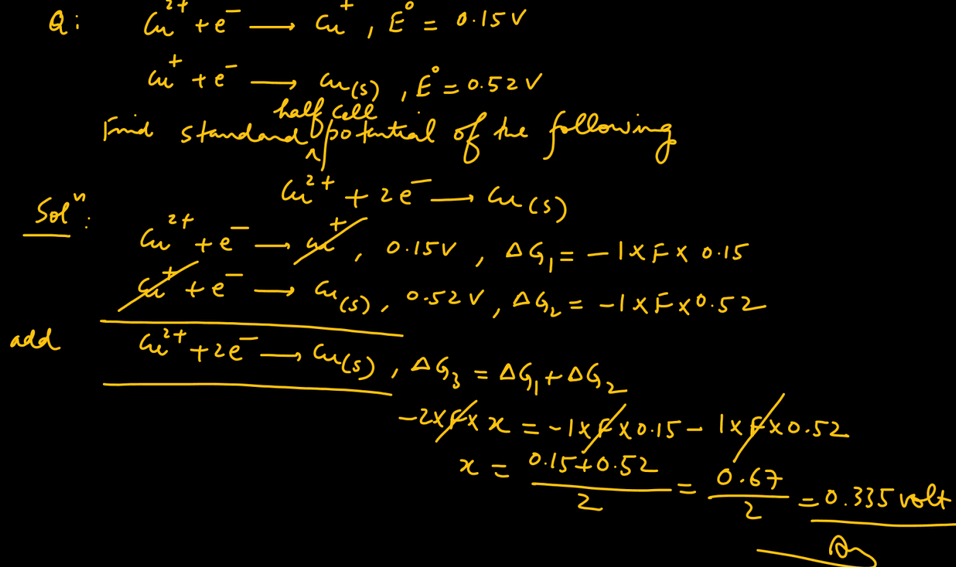 Q: Cu²⁺ + e⁻ → Cu⁺, E° = 0.15V
Cu⁺ + e⁻ → Cu(s), E° = 0.52V
half cell
Find standard potential of the following
Cu²⁺ + 2e⁻ → Cu(s)
Solⁿ:
Cu²⁺ + e⁻ → Cu⁺, 0.15V, ΔG₁ = -1×F×0.15
Cu⁺ + e⁻ → Cu(s), 0.52V, ΔG₂ = -1×F×0.52
add Cu²⁺ + 2e⁻ → Cu(s), ΔG₃ = ΔG₁ + ΔG₂
-2×F×x = -1×F×0.15 - 1×F×0.52
x = (0.15+0.52)/2 = 0.67/2 = 0.335 volt
Ans